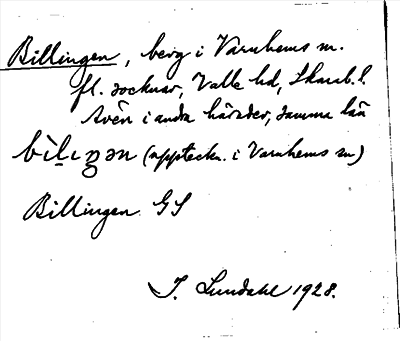 Billingen, berg i Varnhems sn.
fl. socknar, Valle hd, Skarab. l.
Även i andra härader, samma län
bìl̤ıŋən (uppteckn. i Varnhems sn)
Billingen GS
I. Lundahl 1928.